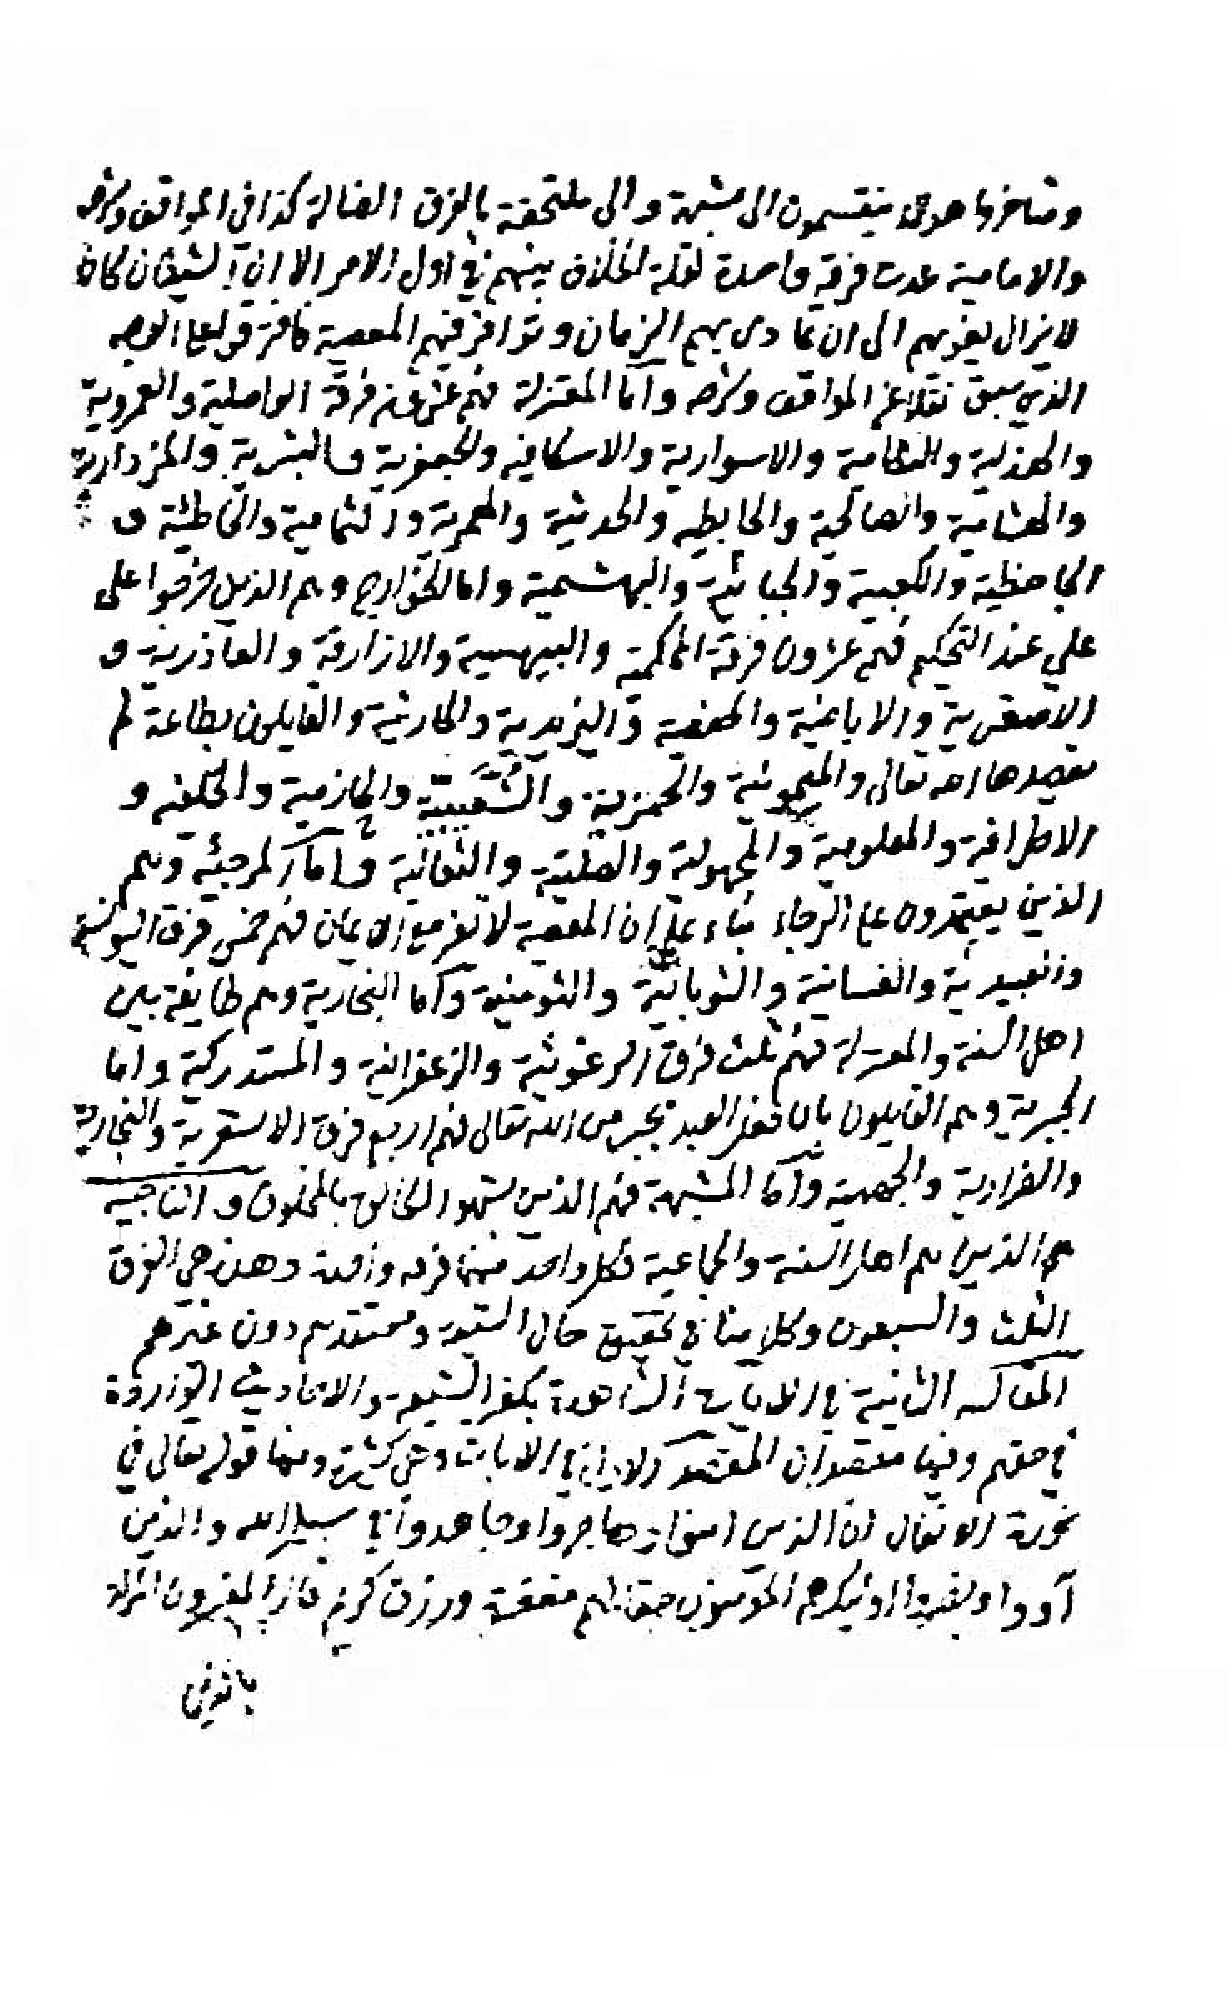 ومتأخروها هو ينقسمون الى مشبهة والى ملتحقة بالفرق الضالة كذا في المواقف وشرحه
والامامية عدت فرقة واحدة لقلة الخلاف بينهم في اول الامر الا ان الشيطان كان
لا يزال يغويهم الى ان تمادى بهم الزمان و فيهم المعصية على الوجه
الذي سبق نقلا عن المواقف وشرحه واما المعتزلة فهم عشرون فرقة الواصلية والعمروية
والهذلية والنظامية والاسوارية والاسكافية والجعفرية والبشرية والمزدارية
والهشامية والصالحية والحابطية والحدثية والمعمرية والثمامية والخاطئية و
الجاحظية والكعبية والجبائية والبهشمية واما الخوارج وهم الذين خرجوا على
علي عند التحكيم فهم عشرون فرقة المحكمة والبيهسية والازارقة والعاذرية و
الاصفرية والاباضية والحفصية واليزيدية والحارثية والقايلون بطاعة لم
يقصد بها الله تعالى والميمونية والحمزية والشعيبية والحازمية والخلفية و
الاطرافية والمعلومية والمجهولية والصلتية والثعالبة واما المرجئة وهم
الذين يعتمدون على الرجاء بناء على ان المعصية لا تضر مع الايمان فهم خمس فرق اليونسية
والعبيدية والغسانية والثوبانية والثومنية واما النجارية وهم طايفة بين
اهل السنة والمعتزلة فهم ثلث فرق البرغوثية والزعفرانية والمستدركية واما
الجبرية وهم القايلون بان فعل العبد بجبر من الله تعالى فهم اربع فرق الاشعرية والنجارية
والضرارية والجهمية واما المشبهة فهم الذين يشبهوا الخالق بالمخلوق والناجية
هم الذين هم اهل السنة والجماعية فكل واحد منهما فرقة واحدة وهذه هي الفرق
الثلث والسبعون وكلامنا في تحقيق حال الشيعة ومعتقدهم دون غيرهم
المقالة الثانية في الآيات الشاهدة بكفر الشيعة والاحاديث الواردة
في حقهم وفيها مقصدان المقصد الاول في الايات وهي كثيرة ومنها قوله تعالى في
سورة الانفال ان الذين امنوا وهاجروا وجاهدوا في سبيل الله والذين
آووا ونصروا اولئك هم المؤمنون حقا لهم مغفرة ورزق كريم قال المفسرون المراد
بالذين